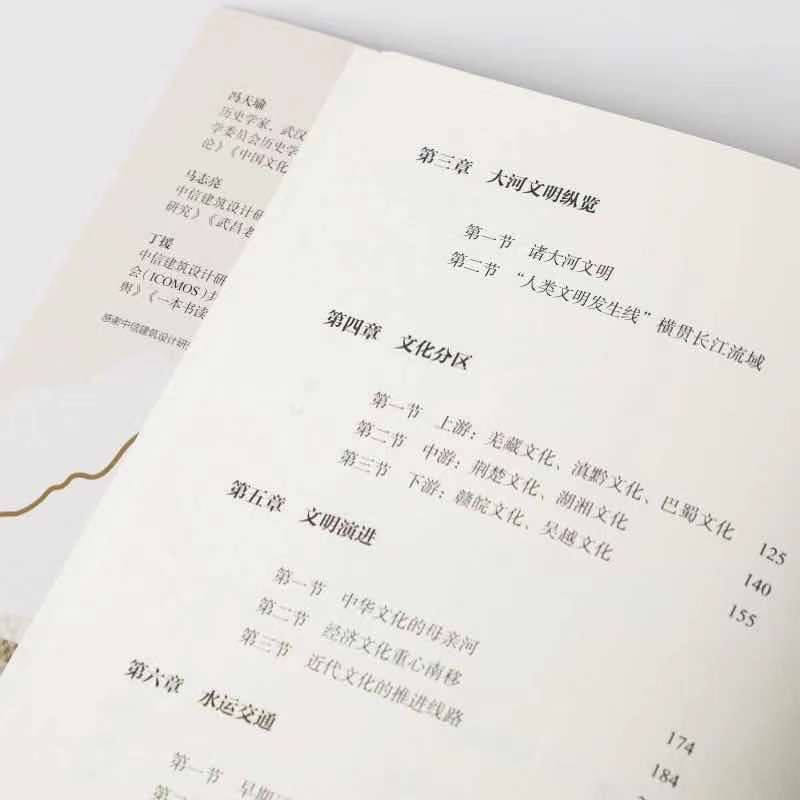 冯天瑜
历史学家，武汉
学委员会历史学
论》《中国文化
马志亮
中信建筑设计研
研究》《武昌老
丁援
中信建筑设计研
会（ICOMOS）共
舆》《一本书读
感谢中信建筑设计研
第三章 大河文明纵览
第一节 诸大河文明
第二节 “人类文明发生线”横贯长江流域
第四章 文化分区
第一节 上游：羌藏文化、滇黔文化、巴蜀文化 125
第二节 中游：荆楚文化、湖湘文化 140
第三节 下游：赣皖文化、吴越文化 155
第五章 文明演进
第一节 中华文化的母亲河 174
第二节 经济文化重心南移 184
第三节 近代文化的推进线路
第六章 水运交通
第一节 早期